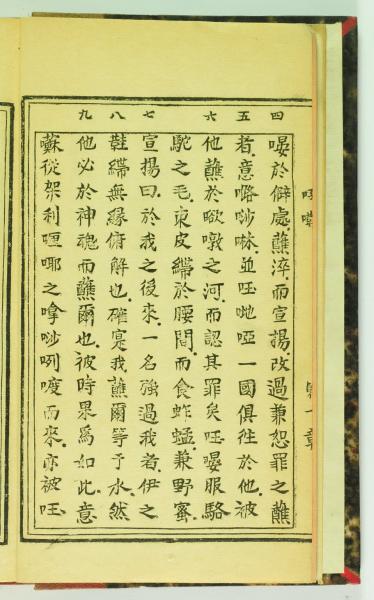 四 五 六 七 八 九
於僻處、蘸淬、而宣揚、改過兼恕罪之蘸
者、意唦、並吔啞一國俱往於他、被
他蘸於墩之河、而認其罪矣、服駱
駝之毛、束皮於腰間、而食蚱蜢、兼野蜜、
宣揚曰、於我之後來、一名強過我者、伊之
鞋無緣俯解也、確寔我蘸爾等于水、然
他必於神魂而蘸爾也、被時果為如此、意
蘇從架利之拿唦咧而來、亦被
第一章